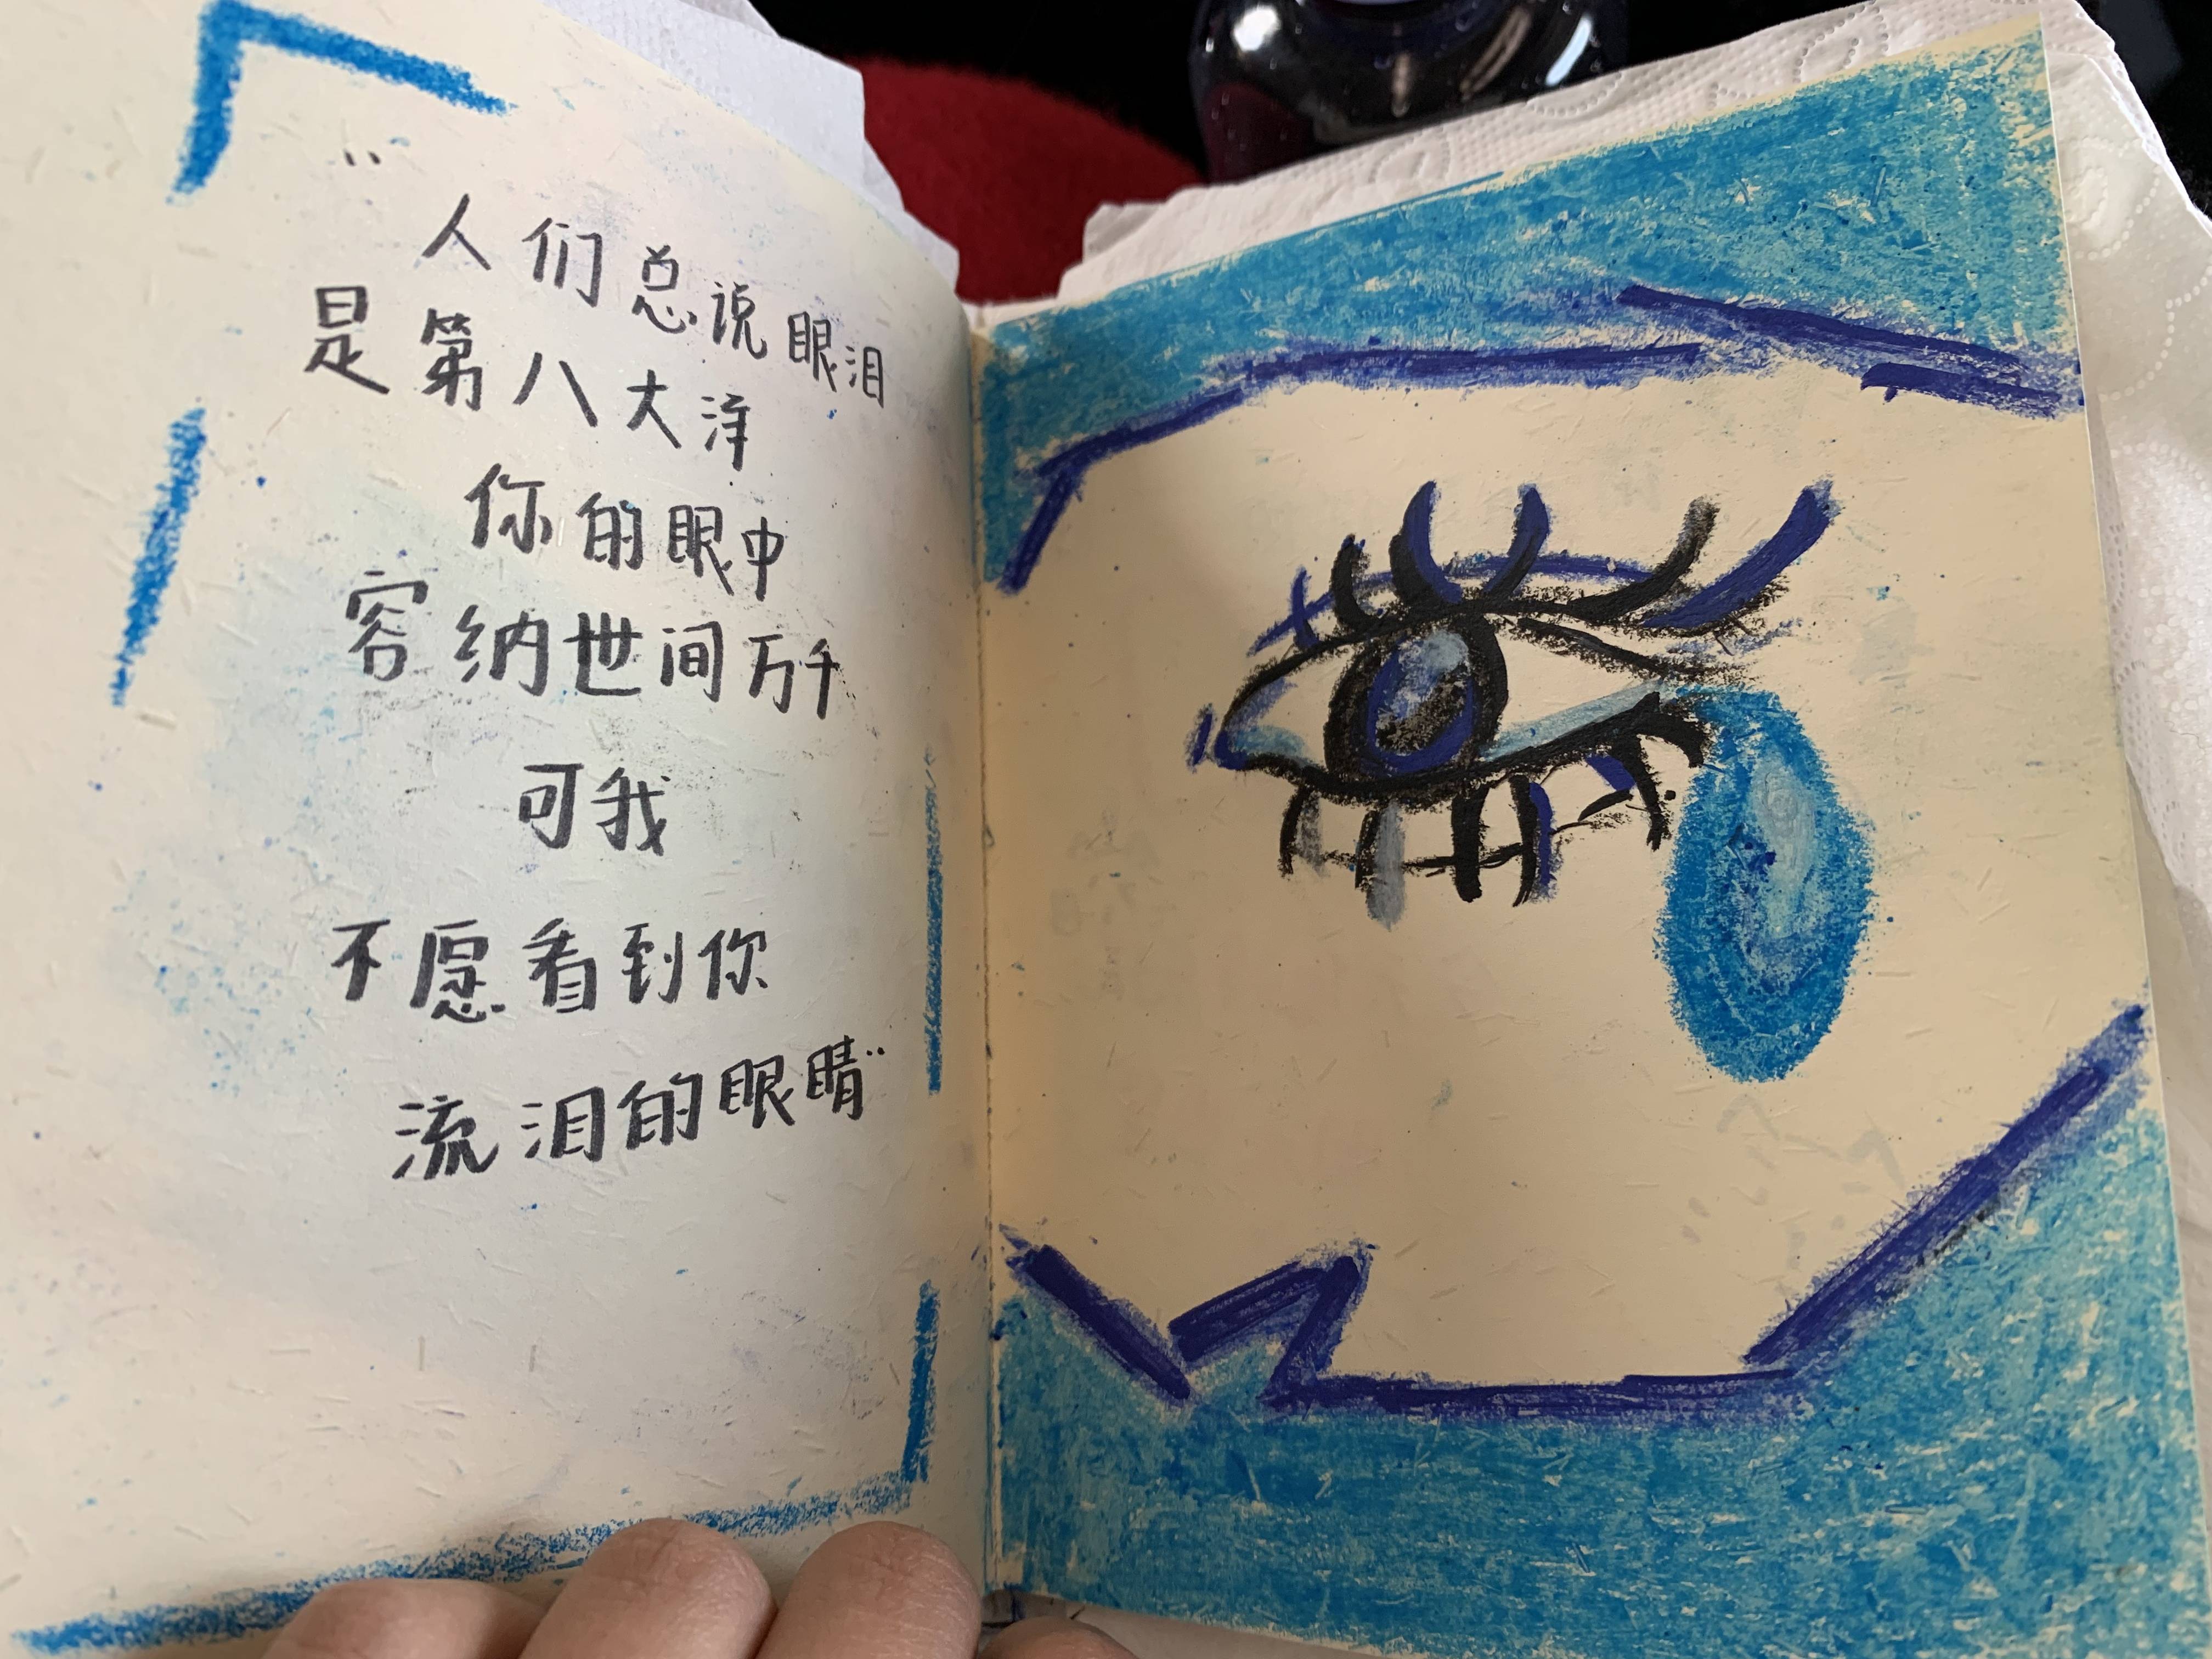 “人们总说眼泪
是第八大洋
你的眼中
容纳世间万千
可我
不愿看到你
流泪的眼睛”